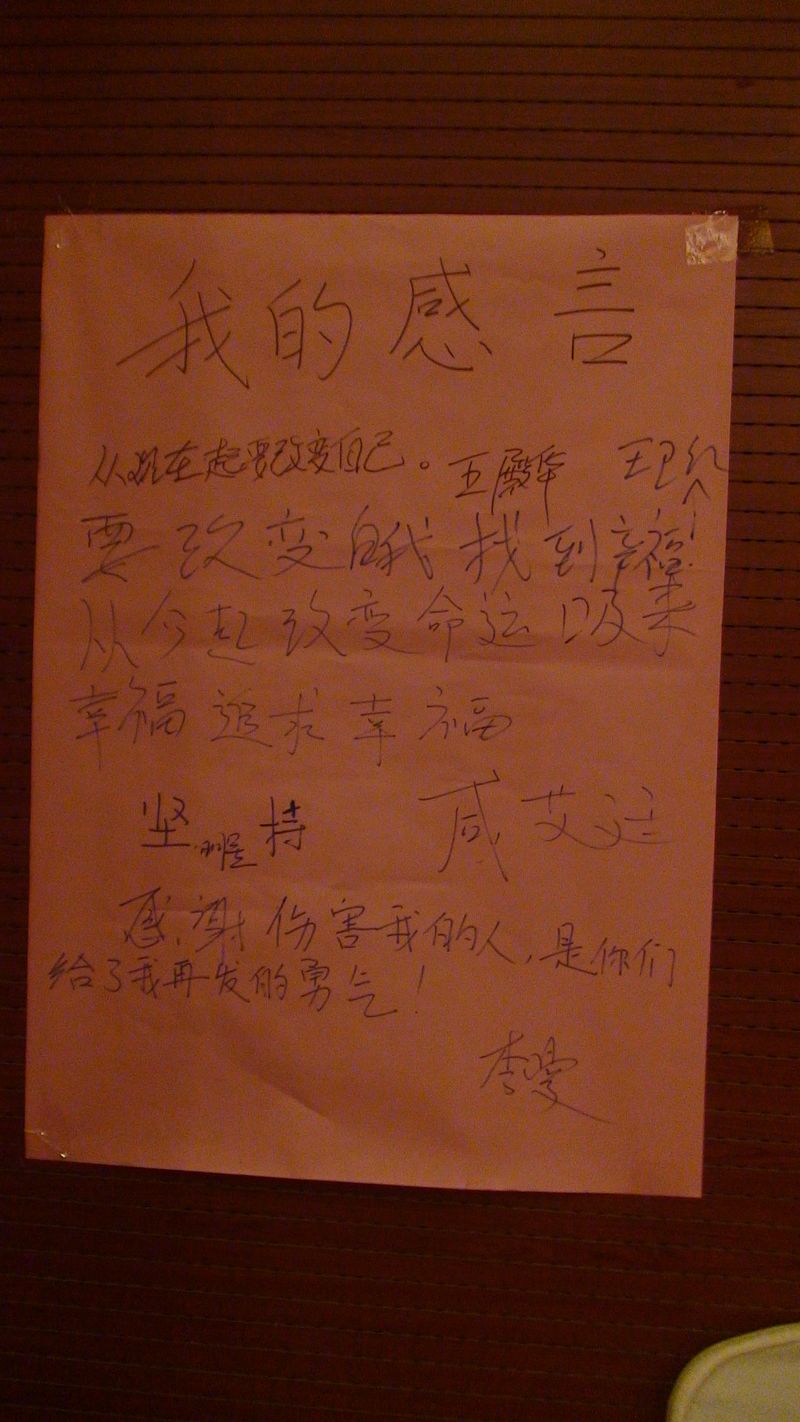 我的感言
从现在起要改变自己。 王殿华 王卫红
要改变自我 找到幸福
从今起改变命运 吸来
幸福 追求幸福
坚持 咸艾廷
感谢伤害我的人,是你们
给了我再发的勇气!
李雯